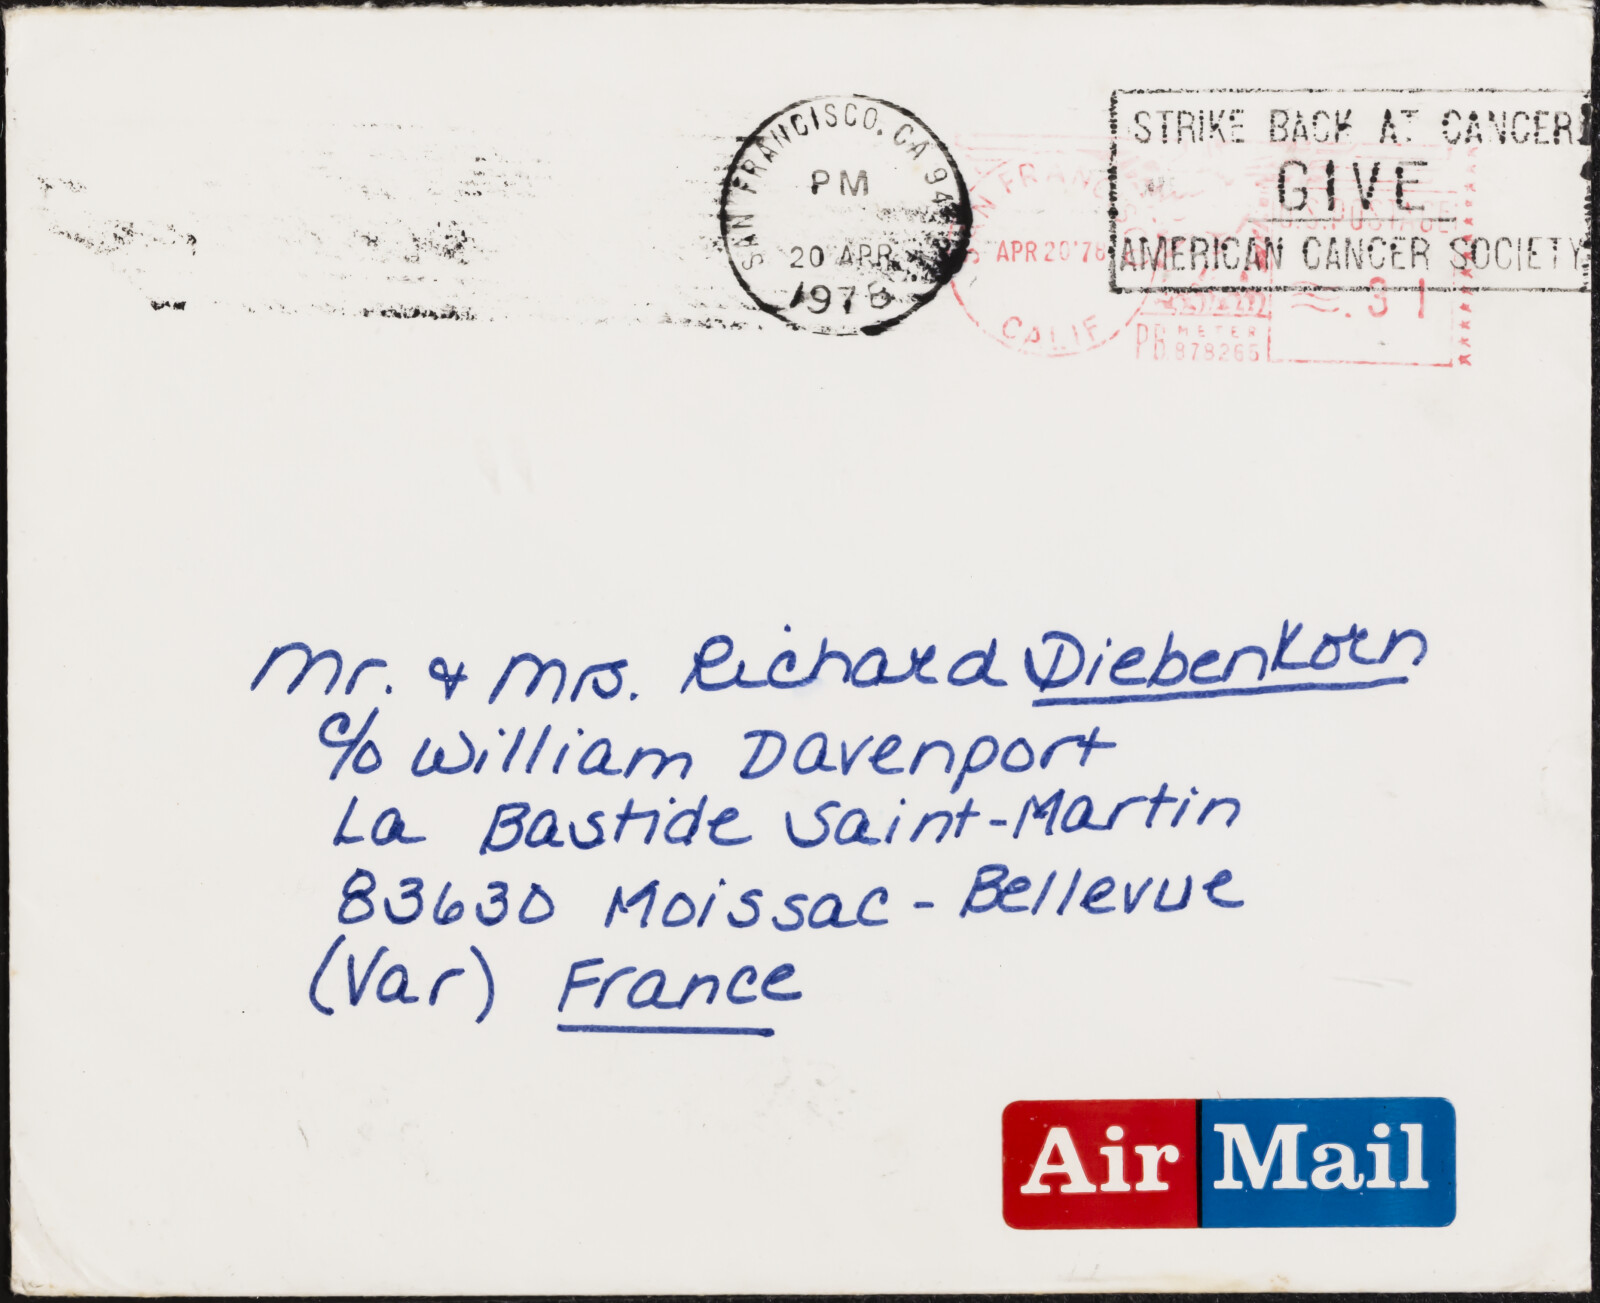 SAN FRANCISCO, CA 94
PM
20 APR
1978
STRIKE BACK AT CANCER
GIVE
AMERICAN CANCER SOCIETY
SAN FRANCISCO
APR 20 '78
CALIF
U.S. POSTAGE
.31
PB METER
878265
Mr. & Mrs. Richard Diebenkorn
c/o William Davenport
La Bastide Saint-Martin
83630 Moissac-Bellevue
(Var) France
Air Mail